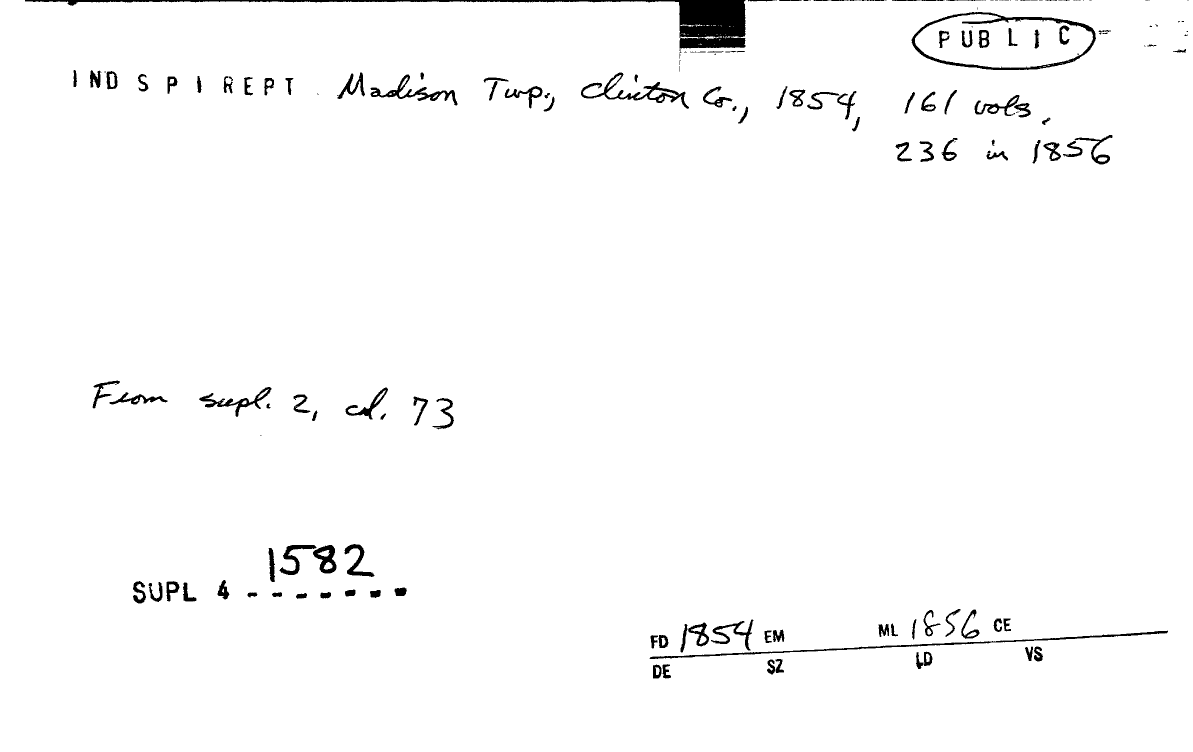 PUBLIC
INDSPIREPT. Madison Twp., Clinton Co., 1854, 161 vols,
236 in 1856
From supl. 2, cd. 73
1582
SUPL 4 -------
FD 1854 EM ML 1856 CE
DE SZ LD VS